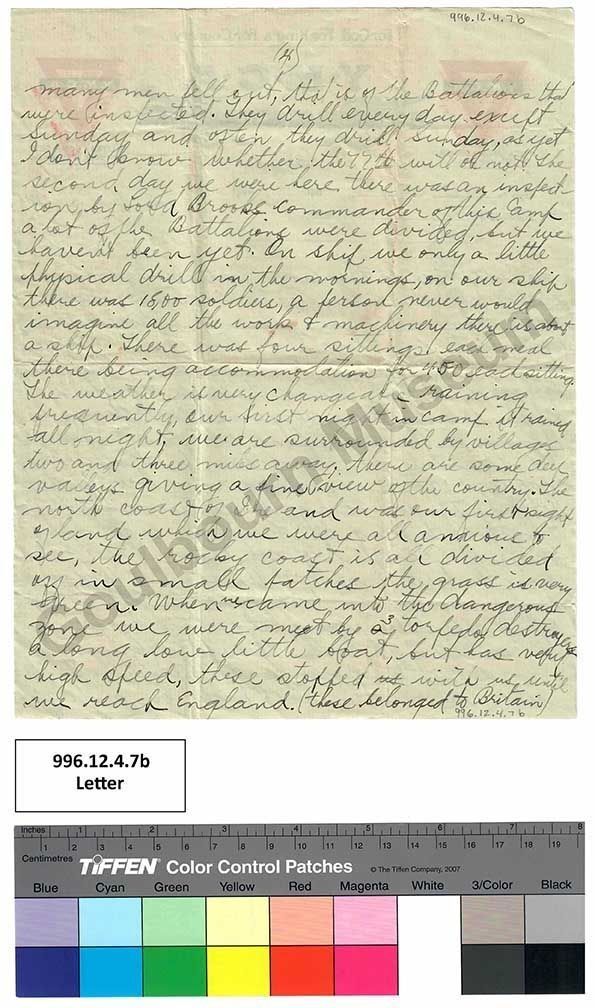 996.12.4.7b
(4)
many men fell out, that is of the Battalions that
were inspected. They drill every day except
Sunday and often they drill Sunday, as yet
I don't know whether the 77th will or not. The
second day we were here there was an inspect-
ion by Lord Brooks commander of this Camp
a lot of the Battalions were divided, but we
havent been yet. On ship we only a little
physical drill in the mornings, on our ship
there was 1500 soldiers, a person never would
imagine all the work & machinery there is about
a ship. There was four sittings each meal
there being accommodation for 400 each sitting.
The weather is very changeable raining
frequently, our first night in camp it rained
all night, we are surrounded by villages
two and three miles away, there are some deep
valleys giving a fine view of the country. The
north coast of Ireland was our first sight
of land which we were all anxious to
see, the rocky coast is all divided
off in small patches the grass is very
green. When we came into the dangerous
zone we were meet by 3 torpedo destroyers
a long low little boat, but has
high speed, these stopped with us until
we reach England. (these belonged to Britain)
996.12.4.7b
Goulbourn Museum
996.12.4.7b
Letter
Inches 1 2 3 4 5 6 7 8
Centimetres 1 2 3 4 5 6 7 8 9 10 11 12 13 14 15 16 17 18 19
TIFFEN Color Control Patches © The Tiffen Company, 2007
Blue Cyan Green Yellow Red Magenta White 3/Color Black